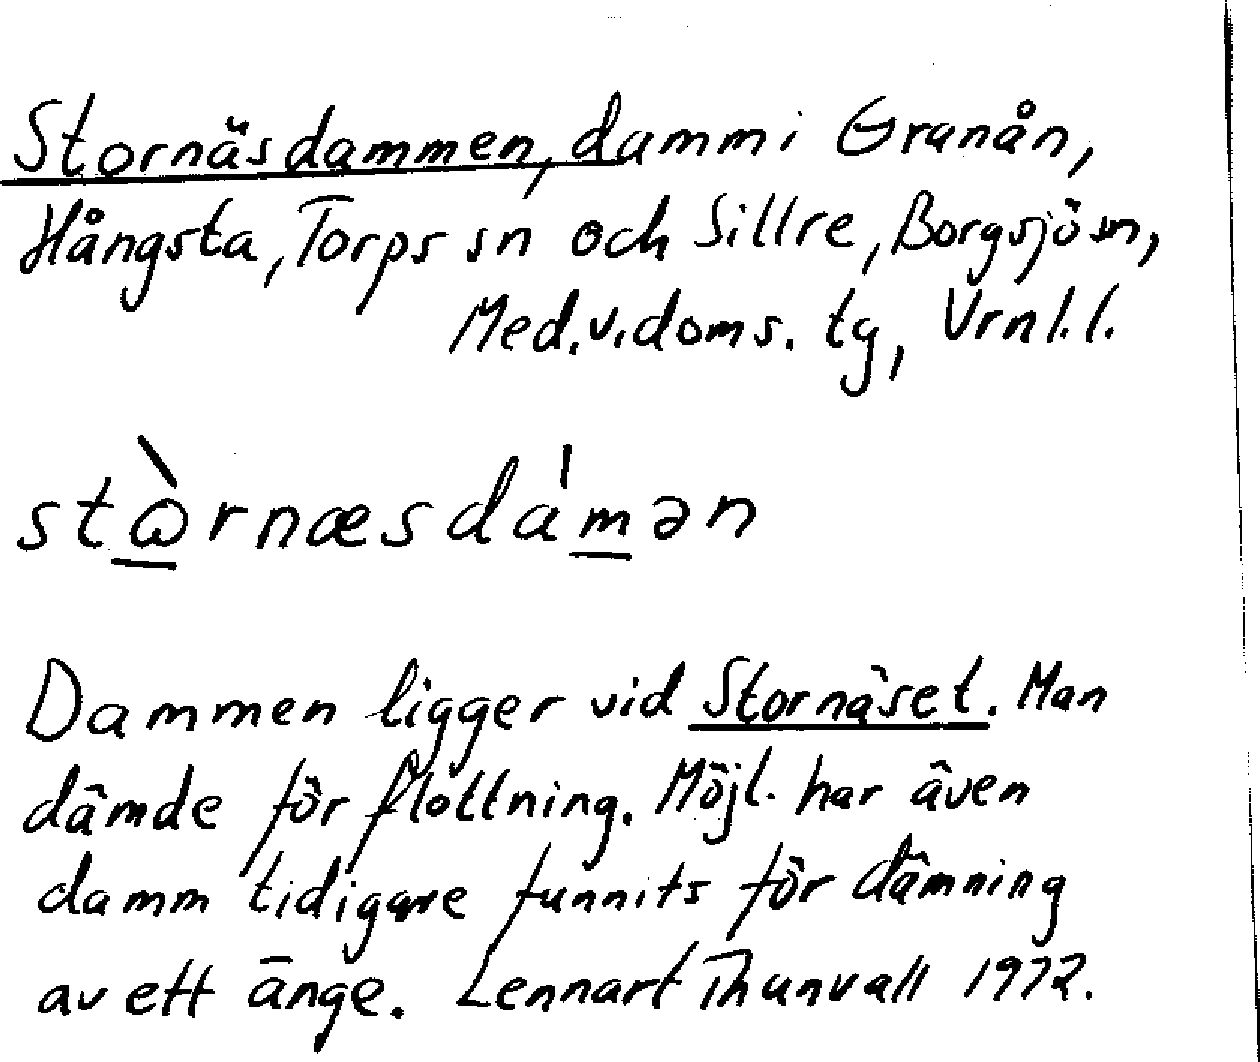 Stornäsdammen, damm i Granån,
Hångsta, Torps sn och Sillre, Borgsjö sn,
Med.v.doms. tg, Vrnl.l.
stɷ̀rnæsdámən
Dammen ligger vid Stornäset. Man
dämde för flottning. Möjl. har även
damm tidigare funnits för dämning
av ett änge. Lennart Thunvall 1972.